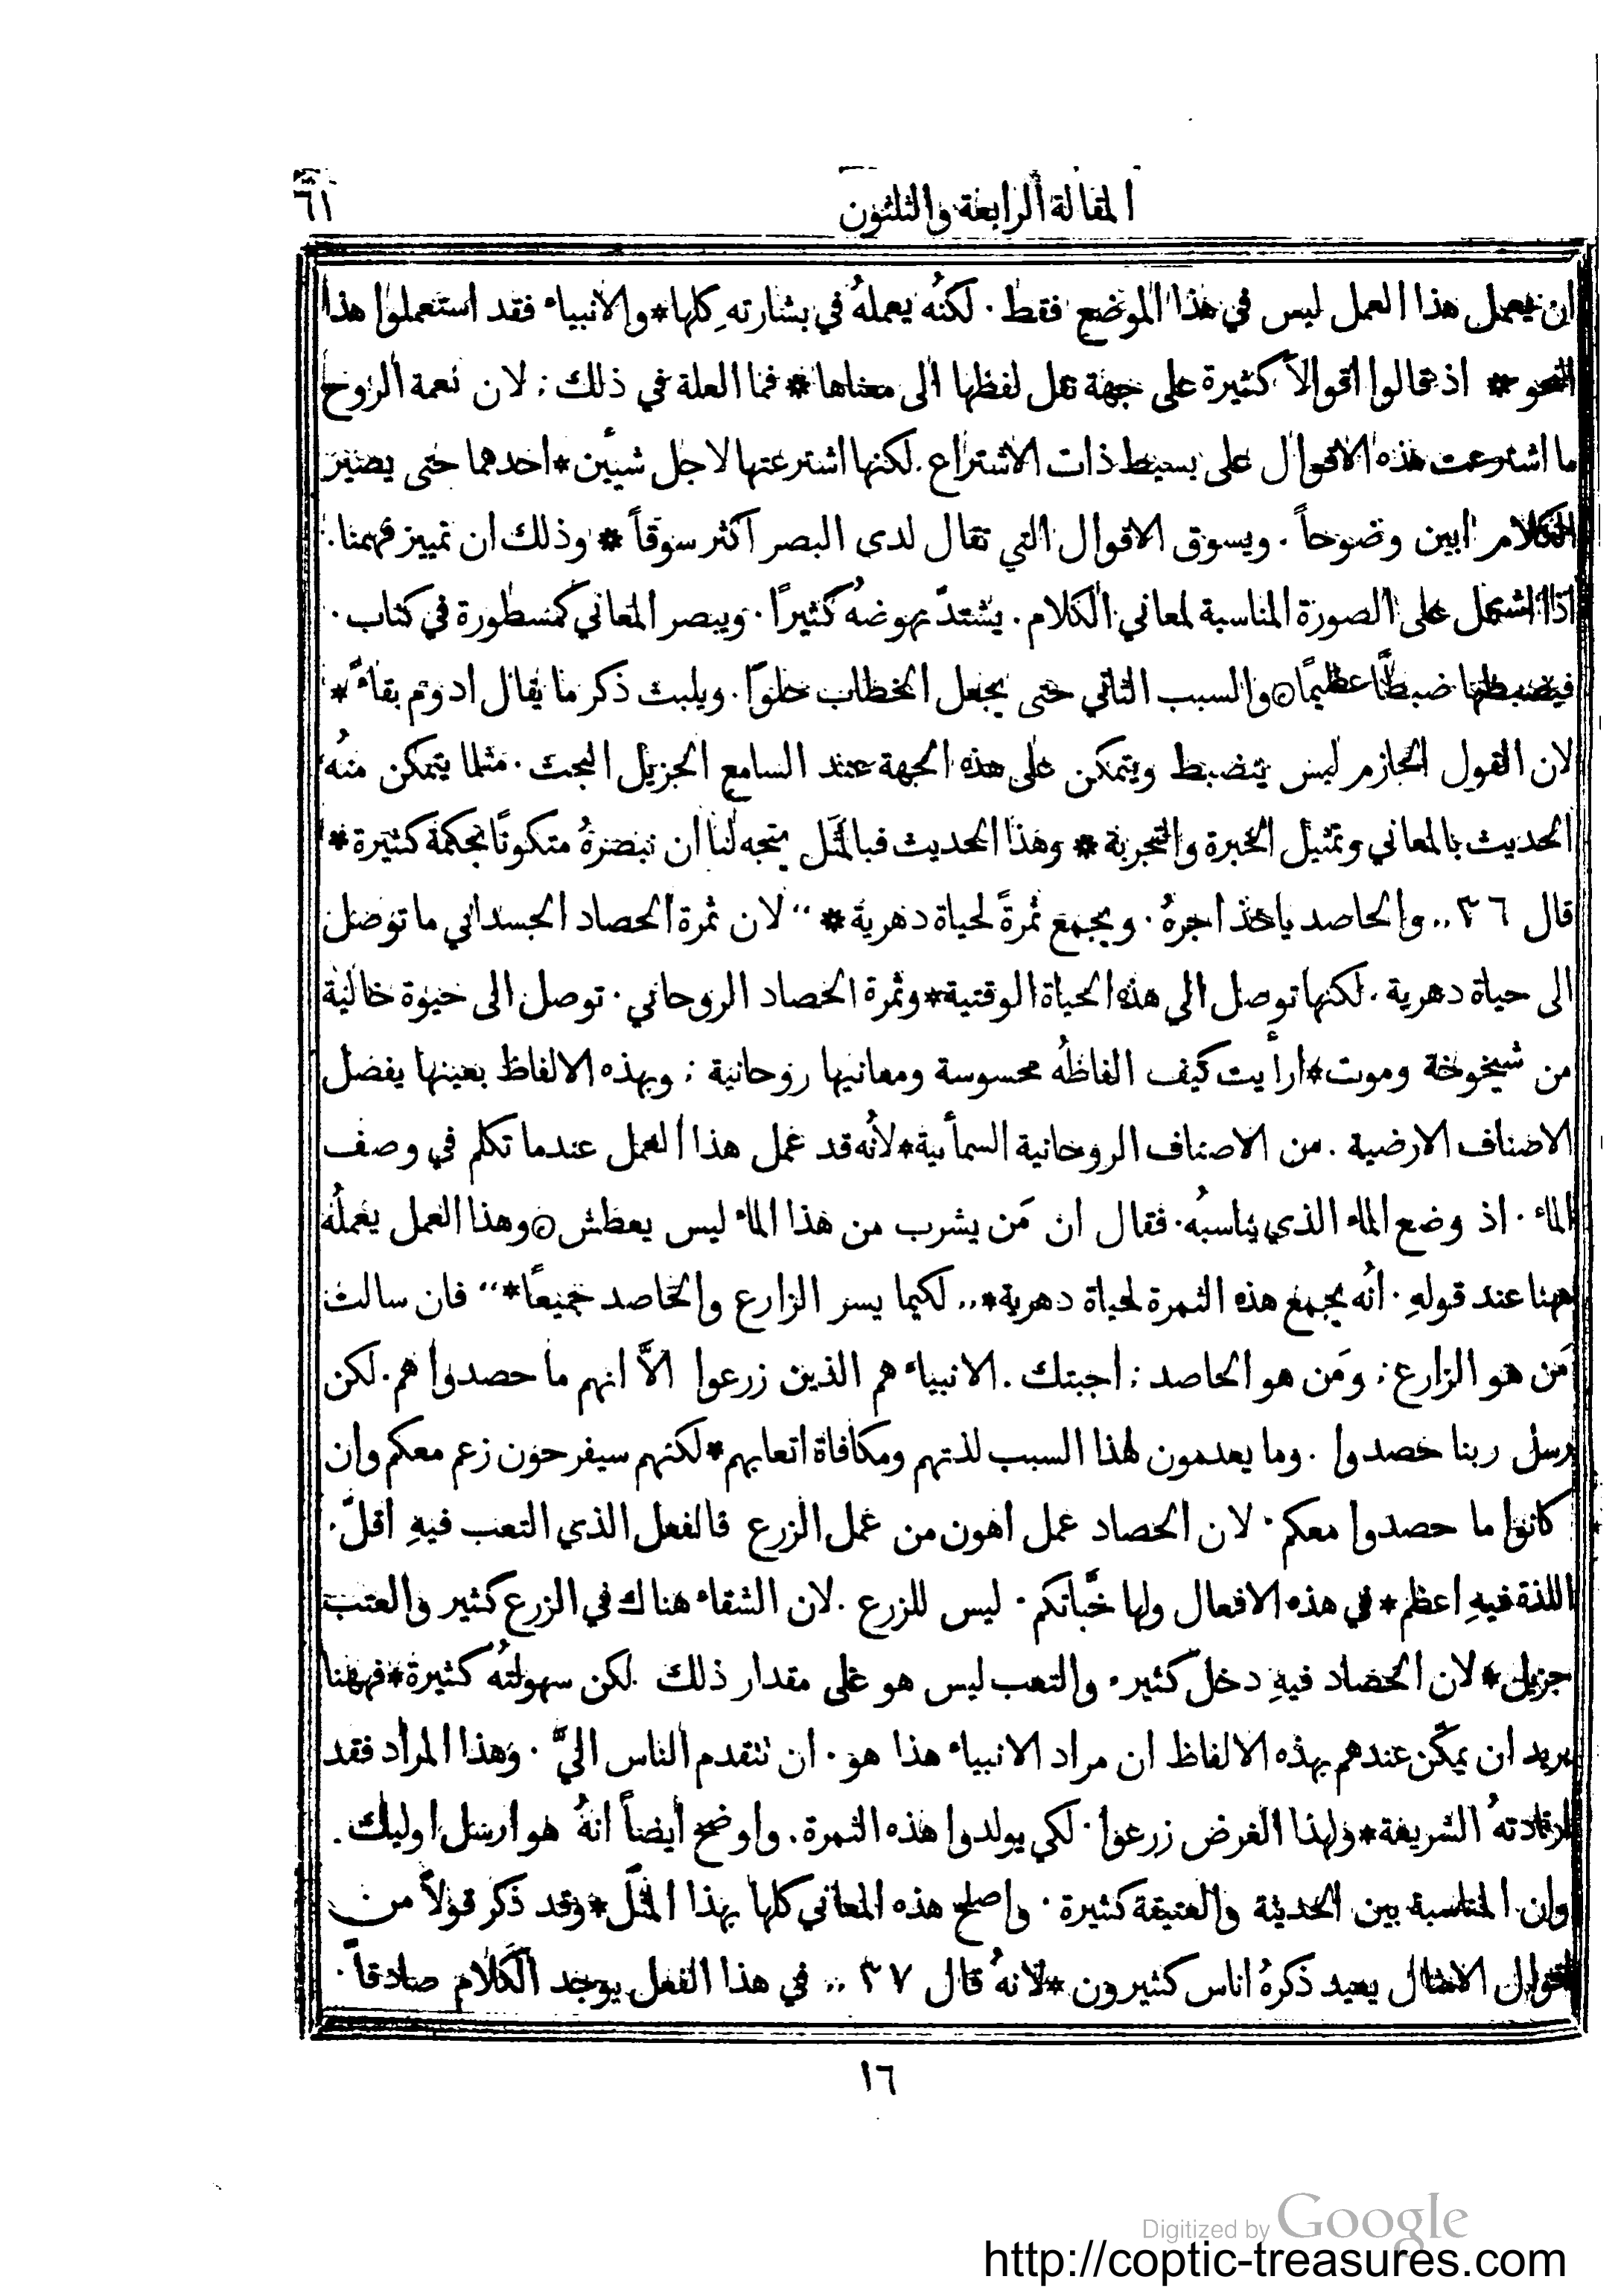 المقالة الرابعة والثلثون
٦١
ان يعمل هذا العمل ليس في هذا الموضع فقط ۰ لكنه يعملهُ في بشارتهِ كلها* والانبياء فقد استعملوا هذا
النحو * اذ قالوا اقوالاً كثيرة على جهة نقل لفظها الى معناها* فما العلة في ذلك ; لان نعمة الروح
ما اشترعت هذه الاقوال على بسيط ذات الاشتراع . لكنها اشترعتها لاجل شيئين* احدهما حتى يصير
الكلام ابين وضوحاً . ويسوق الاقوال التي تقال لدى البصر اكثر سوقاً * وذلك ان تمييز فهمنا .
اذا اشتمل على الصورة المناسبة لمعاني الكلام . يشتدّ نهوضهُ كثيرًا . ويبصر المعاني كمسطورة في كتاب .
فيضبطها ضبطًا عظيمًا ۞ والسبب الثاني حتى يجعل الخطاب حلوًا . ويلبث ذكر ما يقال ادوم بقاءً *
لان القول الجازم ليس ينضبط ويتمكن على هذه الجهة عند السامع الجزيل البحث . مثلما يتمكن منهُ
الحديث بالمعاني وتمثيل الخبرة والتجربة * وهذا الحديث فبالمثَل يتجه لنا ان نبصرهُ متكونًا بحكمة كثيرة *
قال ٣٦ ,, والحاصد ياخذ اجرهُ . ويجمع ثمرةً لحياة دهرية * ,, لان ثمرة الحصاد الجسداني ما توصل
الى حياة دهرية . لكنها توصل الى هذه الحياة الوقتية* وثمرة الحصاد الروحاني . توصل الى حيوة خالية
من شيخوخة وموت* ارأيت كيف الفاظهُ محسوسة ومعانيها روحانية ; وبهذه الالفاظ بعينها يفصل
الاصناف الارضية . من الاصناف الروحانية السمأية* لانه قد عمل هذا العمل عندما تكلم في وصف
الماء ۰ اذ وضع الماء الذي يناسبهُ . فقال ان مَن يشرب من هذا الماء ليس يعطش ۞ وهذا العمل يعملهُ
ههنا عند قولهِ . انه يجمع هذه الثمرة لحياة دهرية* ,, لكيما يسر الزارع والحاصد جميعًا* ,, فان سالت
مَن هو الزارع ; ومَن هو الحاصد ; اجبتك . الانبياء هم الذين زرعوا الاَّ انهم ما حصدوا هم . لكن
رسل ربنا حصدوا . وما يعدمون لهذا السبب لذتهم ومكافاة اتعابهم* لكنهم سيفرحون زعم معكم وان
كانوا ما حصدوا معكم . لان الحصاد عمل اهون من عمل الزرع فالفعل الذي التعب فيهِ اقلّ .
اللذة فيهِ اعظم* في هذه الافعال ولها خبَّاتكم . ليس للزرع . لان الشقاء هناك في الزرع كثير والعتب
جزيل* لان الحصاد فيهِ دخل كثير . والتعب ليس هو على مقدار ذلك لكن سهولتهُ كثيرة* فههنا
يريد ان يمكّن عندهم بهذه الالفاظ ان مراد الانبياء هذا هو . ان تتقدم الناس اليَّ . وهذا المراد فقد
ارتادتهُ الشريعة* ولهذا الغرض زرعوا . لكي يولدوا هذه الثمرة . واوضح أيضاً انهُ هو ارسل اوليك .
وان المناسبة بين الحديثة والعتيقة كثيرة . واصلح هذه المعاني كلها بهذا المثَل* وقد ذكر قولاً من
اقوال الامثال يعيد ذكرهُ اناس كثيرون * لانهُ قال ٣٧ ,, في هذا الفعل يوجد الكلام صادقاً .
١٦
Digitized by Google
http://coptic-treasures.com